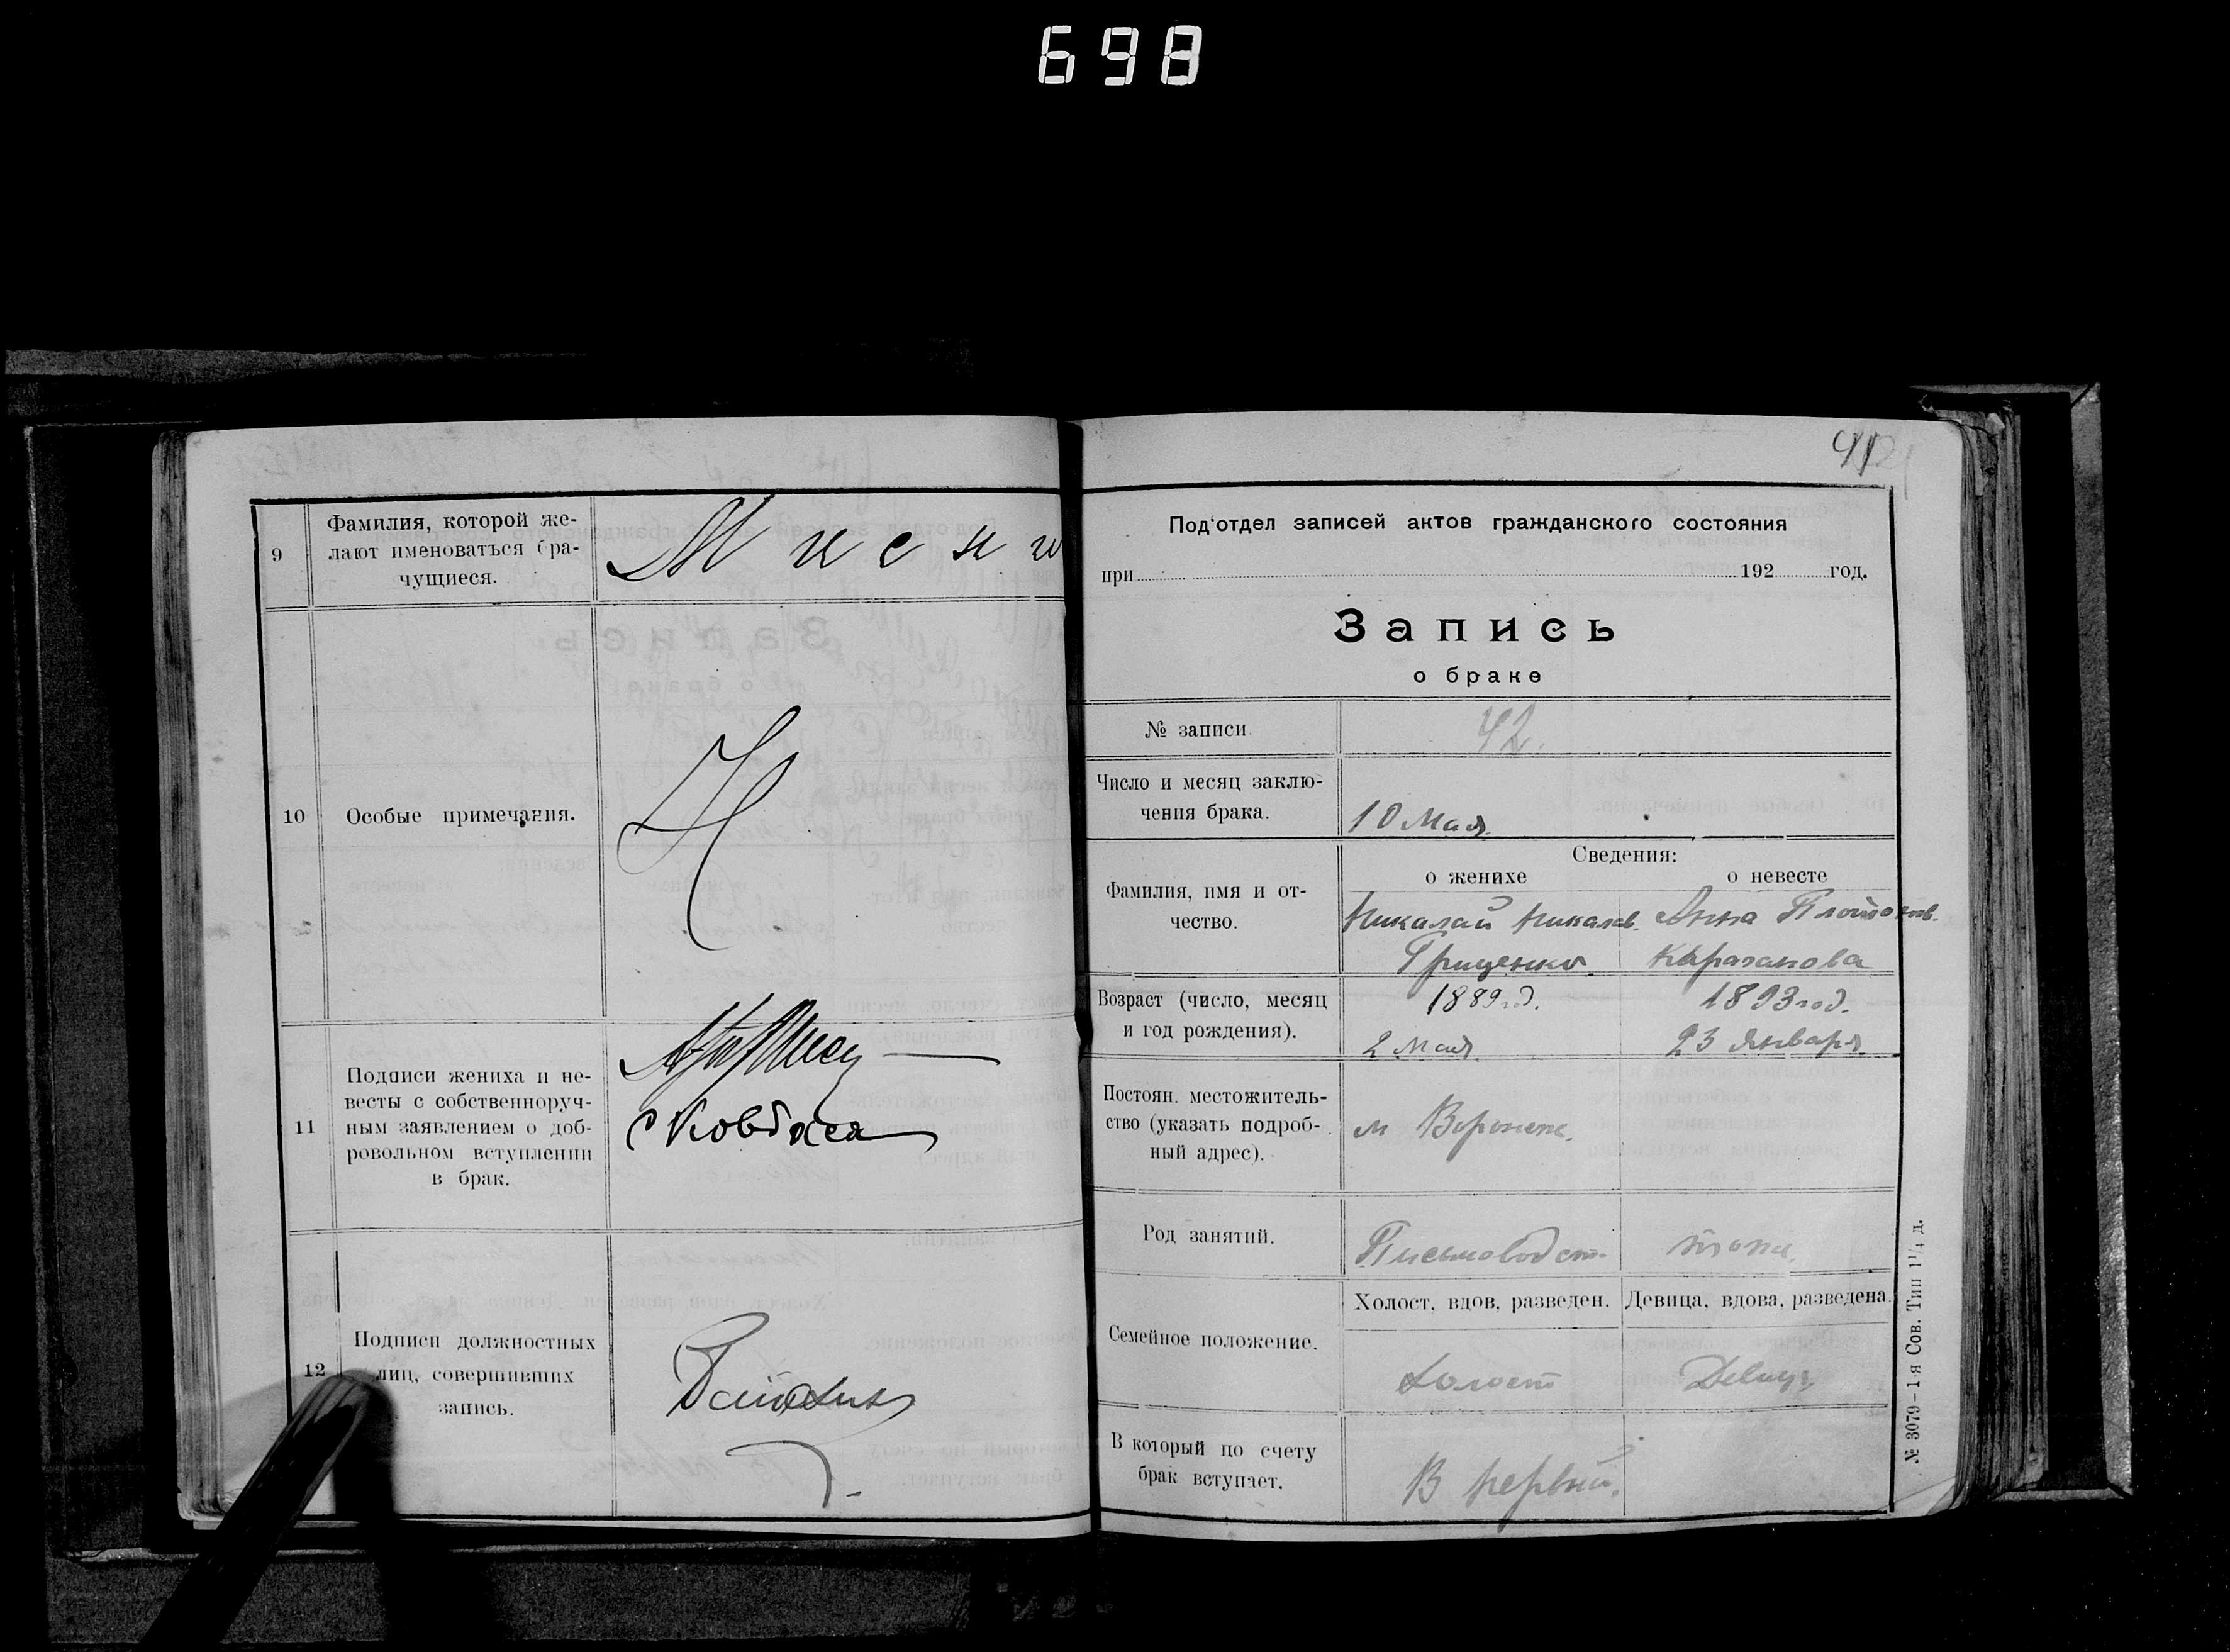 698
9
Фамилия, которой же-
лают именоваться бра-
чущиеся.
10
Особые примечания.
11
Подписи жениха и не-
весты с собственноруч-
ным заявлением о доб-
ровольном вступлении
в брак.
СКовбаса
12
Подписи должностных
лиц, совершивших
запись.
Под'отдел записей актов гражданского состояния
при 192 год.
Запись
о браке
№ записи
42.
Число и месяц заклю-
чения брака.
10 Мая.
Сведения:
о женихе
о невесте
Фамилия, имя и от-
чество.
Николай Никалав.
Гриценко
Анна Платонов.
Возраст (число, месяц
и год рождения).
1889 год.
2 Мая.
1893 год.
23 Января
Постоян. местожитель-
ство (указать подроб-
ный адрес).
м
Род занятий.
Письмоводст.
тоже.
Семейное положение.
Холост, вдов, разведен.
Девица, вдова, разведена.
Холост
Девица
В который по счету
брак вступает.
В первый.
№ 3079-1-я Сов. Тип 1¼ д.